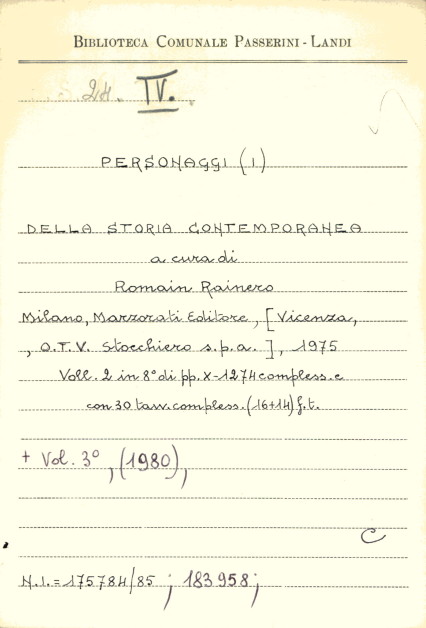 BIBLIOTECA COMUNALE PASSERINI - LANDI
S. 24. IV.
PERSONAGGI (I)
DELLA STORIA CONTEMPORANEA
a cura di
Romain Rainero
Milano, Marzorati Editore, [Vicenza,
, O.T.V. Stocchiero s.p.a.], 1975
Voll. 2 in 8° di pp. X-1274 compless. e
con 30 tavv. compless. (16+14) f.t.
+ Vol. 3°, (1980),
C
N.I. = 175784/85 ; 183958;